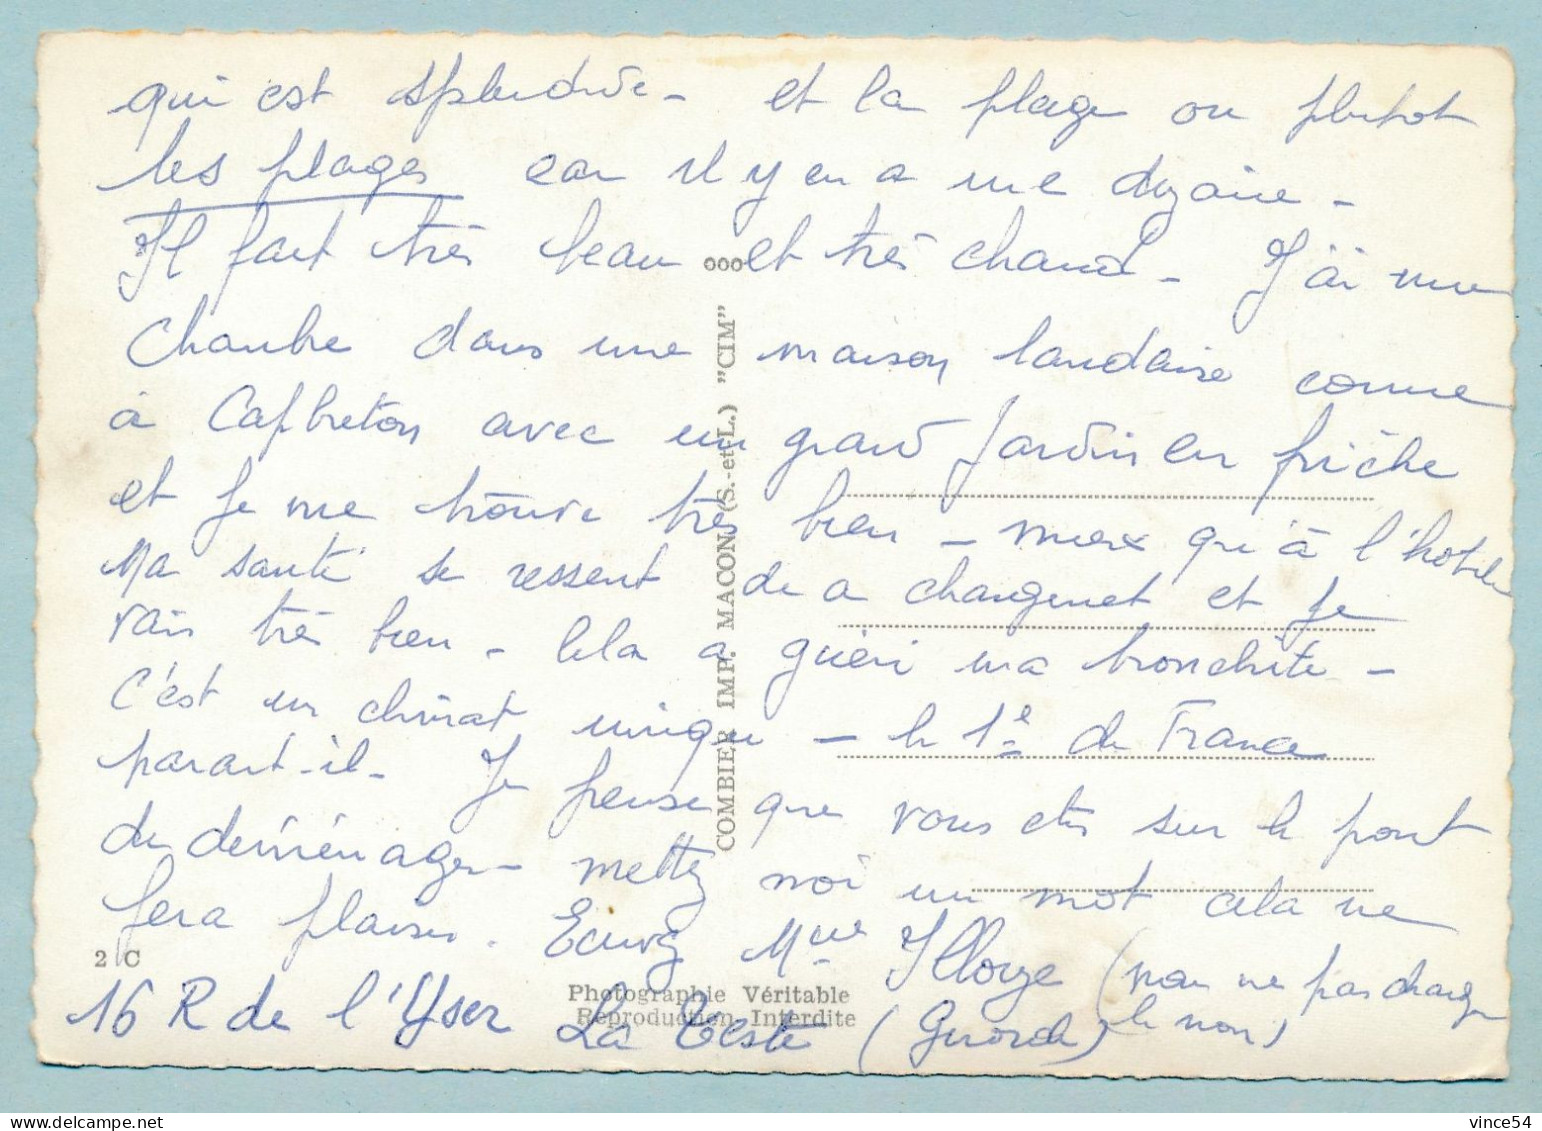 qui est splendide - et la plage ou plutot
les plages car il y en a une dizaine -
Il fait très beau et très chaud - J'ai une
Chambre dans une maison landaise comme
à Capbreton avec un grand Jardin en friche
et Je me trouve très bien - mieux qu'à l'hôtel
Ma santé se ressent de ce changement et Je
vais très bien - Cela a guéri ma bronchite -
C'est un climat unique - le 1e de France
parait-il - Je pense que vous êtes sur le point
de déménager - mettez moi un mot cela me
fera plaisir. Ecrivez Mme (pour ne pas changer
le nom)
16 R de l'Yser La Teste (Gironde)
2 C
Photographie Véritable
Reproduction Interdite
COMBIER IMP. MACON (S.-et-L.) "CIM"
ooo
delcampe.net
vince54